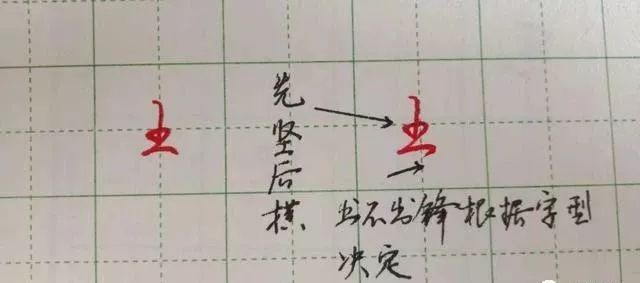 先竖后横
出不出锋根据字型
决定